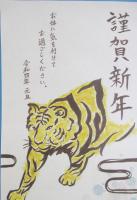 謹賀新年
お体に気を付けて
お過ごしください。
令和四年 元旦